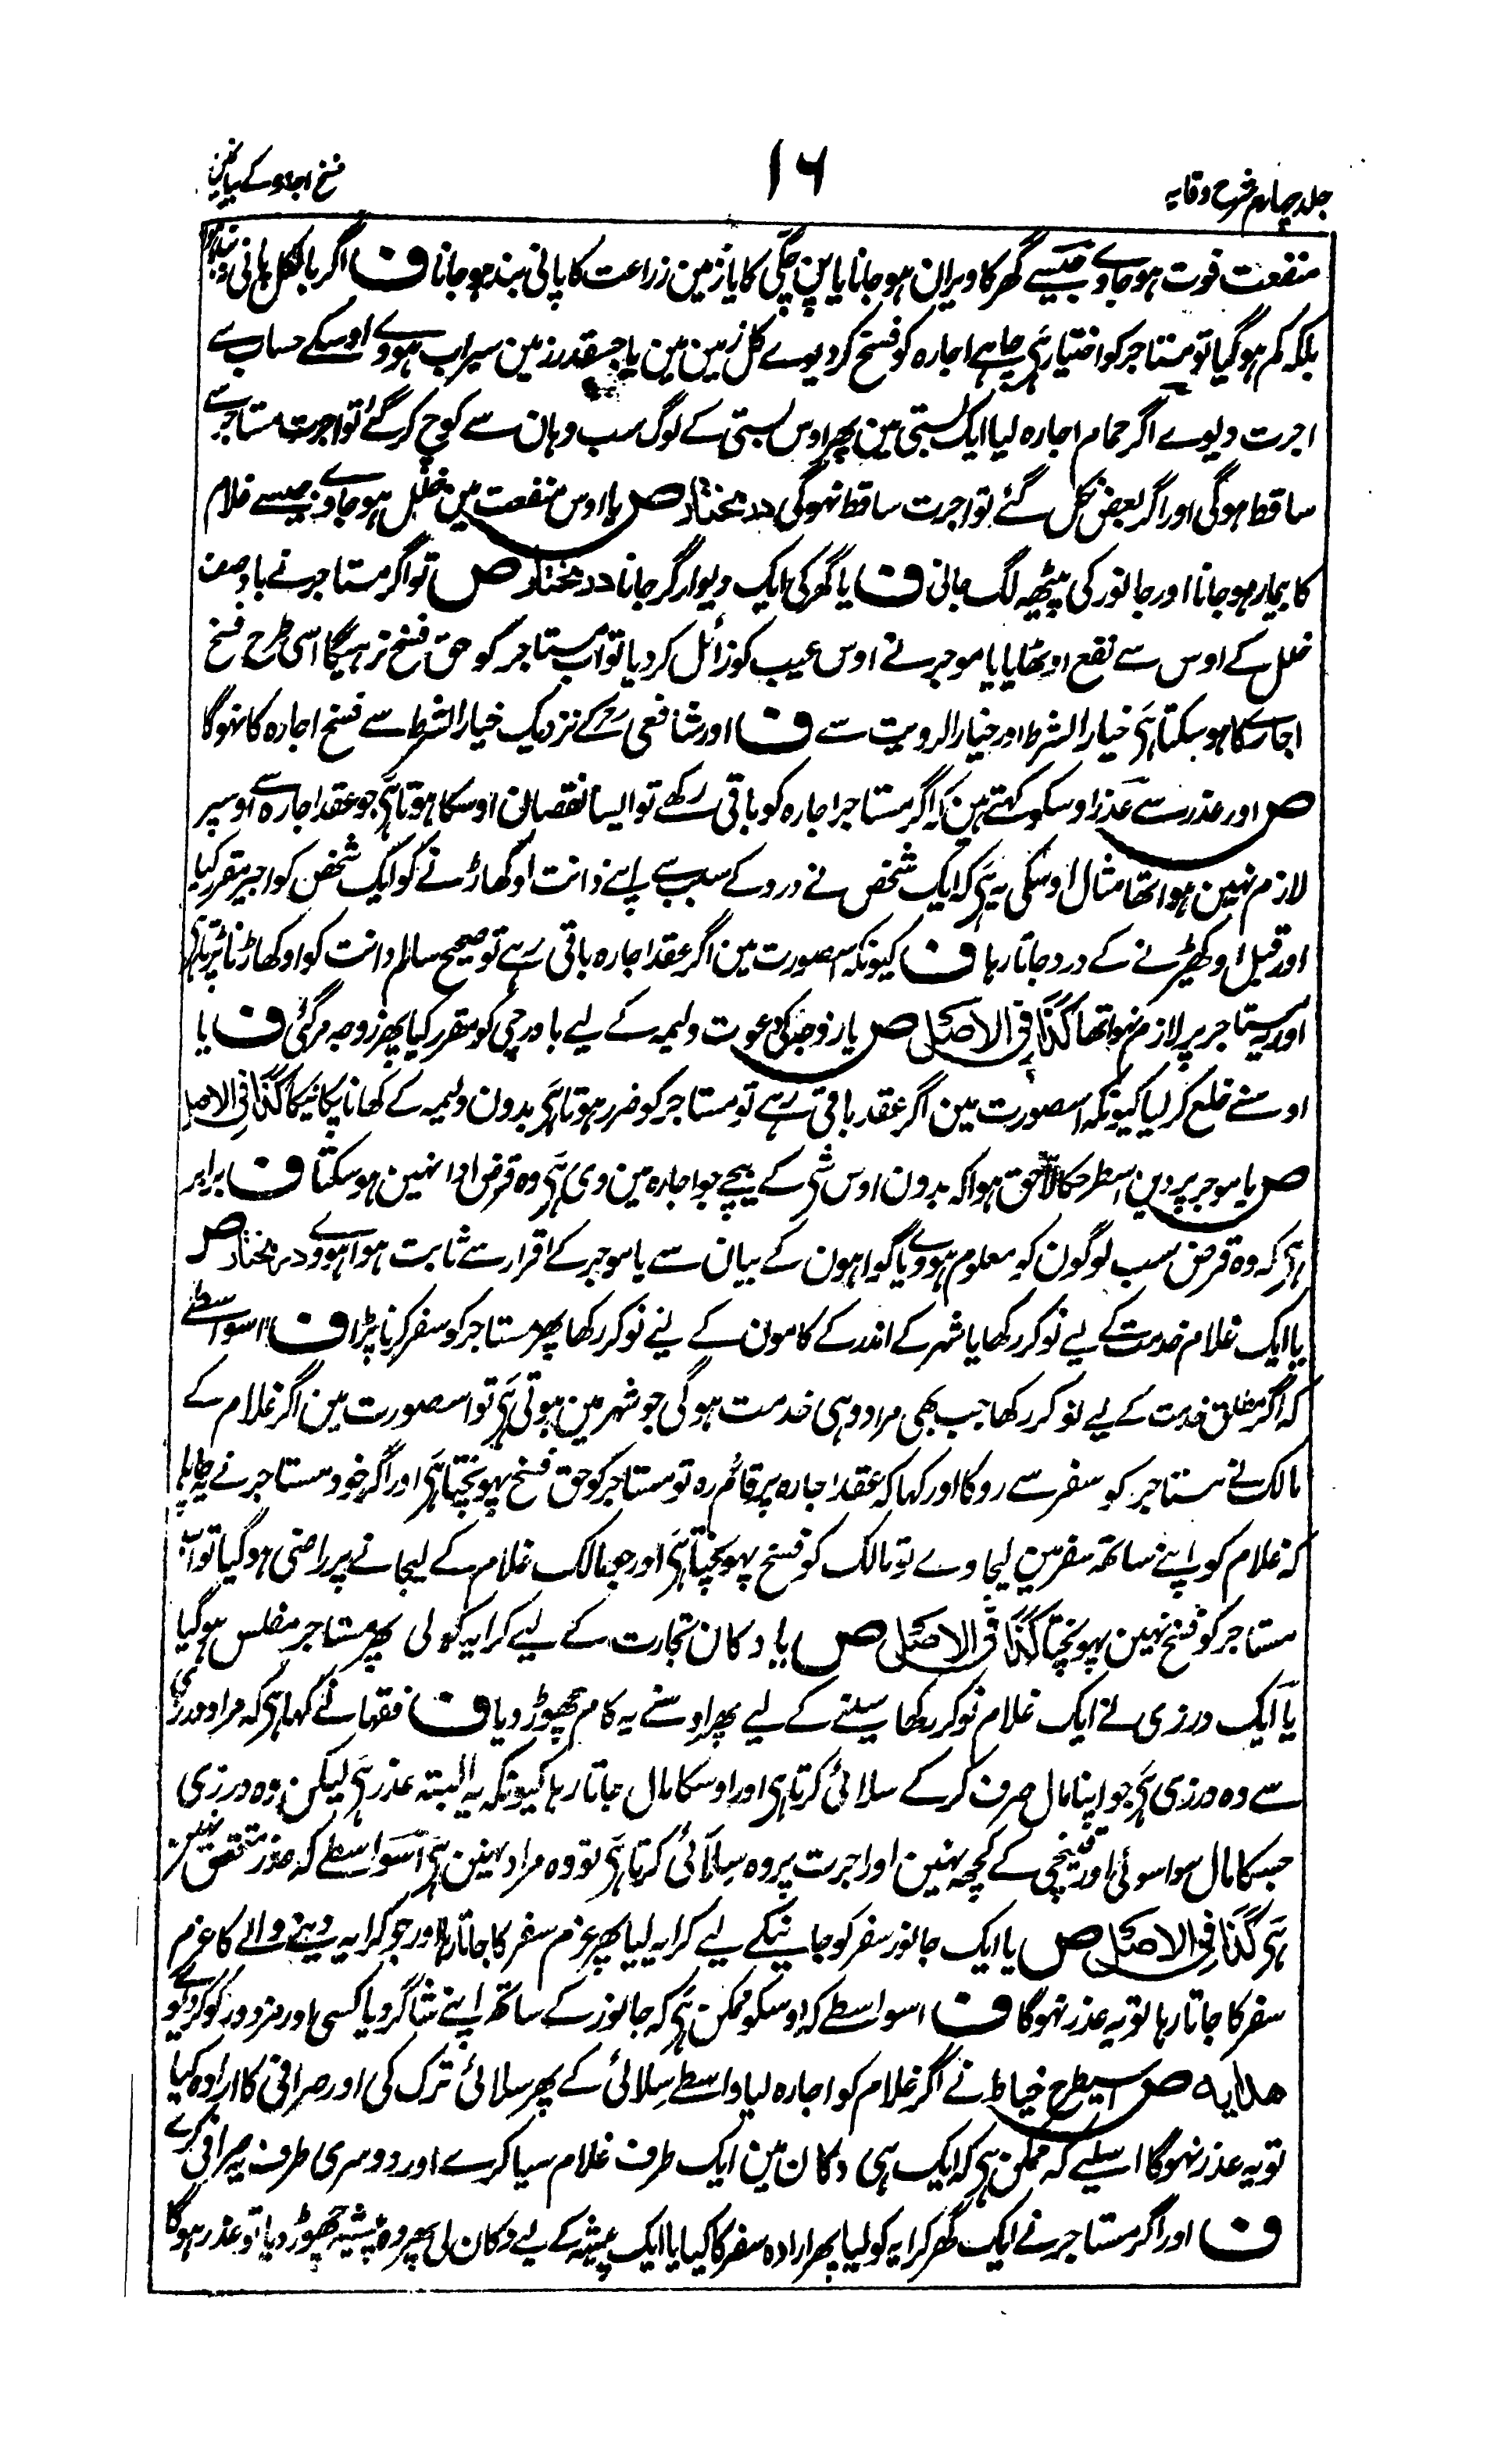 جلد چہارم شرح وقایہ
۱۶
فسخ اجارہ کے بیان مین
منفعت فوت ہو جاوے جیسے گھر کا ویران ہو جانا یا پن چکی کا یا زمین زراعت کا پانی بند ہو جانا ف اگر بالکل پانی بند نہوا
بلکہ کم ہو گیا تو مستاجر کو اختیار ہی چاہے اجارہ کو فسخ کر دیوے کل زمین مین یا جسقدر زمین سیراب ہووے اوسکے حساب سے
اجرت دیوے اگر حمام اجارہ لیا ایک بستی مین پھر اوس بستی کے لوگ سب وہان سے کوچ کر گئے تو اجرت مستاجر سے
ساقط ہوگی اور اگر بعض نکل گئے تو اجرت ساقط نہوگی درمختار ص یا اوس منفعت مین خلل ہو جاوے جیسے غلام
کا بیمار ہو جانا اور جانور کی پیٹھہ لگ جانی ف یا گھر کی ایک دیوار گر جانا درمختار ص تو اگر مستاجر نے باوصف
خلل کے اوس سے نفع اوٹھایا یا موجر نے اوس عیب کو زائل کر دیا تو اب مستاجر کو حق فسخ نرہیگا اسی طرح فسخ
اجارہ کا ہو سکتا ہی خیار الشرط اور خیار الرویت سے ف اور شافعی رح کے نزدیک خیار الشرط سے فسخ اجارہ کا نہوگا
ص اور عذر سے عذر اوسکو کہتے ہین کہ اگر مستاجر اجارہ کو باقی رکھے تو ایسا نقصان اوسکا ہوتا ہی جو عقد اجارہ سے اوسپر
لازم نہین ہوا تھا مثال اوسکی یہ ہی کہ ایک شخص نے درد کے سبب سے اپنے دانت اوکھاڑنے کو ایک شخص کو اجیر مقرر کیا
اور قبل اوکھیڑنے کے درد جاتا رہا ف کیونکہ اس صورت مین اگر عقد اجارہ باقی رہے تو صحیح سالم دانت کو اوکھاڑنا پڑتا ہی
اور یہ مستاجر پر لازم نہوا تھا کذا فی الاصل ص یا زوجہ کی دعوت ولیمہ کے لیے باورچی کو مقرر کیا پھر زوجہ مرگئی ف یا
اوسنے خلع کر لیا کیونکہ اسصورت مین اگر عقد باقی رہے تو مستاجر کو ضرر ہوتا ہی بدون ولیمہ کے کھانا پکانیکا کذا فی الاصل
ص یا موجر پر دین اسطرحکا لاحق ہوا کہ بدون اوس شی کے بیچے جو اجارہ مین دی ہی وہ قرض ادا نہین ہو سکتا ف برابر
ہی کہ وہ قرض سب لوگون کو معلوم ہووے یا گواہون کے بیان سے یا موجر کے اقرار سے ثابت ہوا ہووے درمختار ص
یا ایک غلام خدمت کے لیے نوکر رکھا یا شہر کے اندر کے کامون کے لیے نوکر رکھا پھر مستاجر کو سفر کرنا پڑا ف اسواسطے
کہ اگر مطلق خدمت کے لیے نوکر رکھا جب بھی مراد وہی خدمت ہوگی جو شہر مین ہوتی ہی تو اسصورت مین اگر غلام کے
مالک نے مستاجر کو سفر سے روکا اور کہا کہ عقد اجارہ پر قائم رہ تو مستاجر کو حق فسخ پہونچتا ہی اور اگر خود مستاجر نے یہ چاہا
کہ غلام کو اپنے ساتھہ سفر مین لیجاوے تو مالک کو فسخ پہونچتا ہی اور جو مالک غلام کے لیجانے پر راضی ہو گیا تو اب
مستاجر کو فسخ نہین پہونچتا کذا فی الاصل ص یا دکان تجارت کے لیے کرایہ کو لی پھر مستاجر مفلس ہو گیا
یا ایک درزی نے ایک غلام نوکر رکھا سینے کے لیے پھر اوسنے یہ کام چھوڑ دیا ف فقہا نے کہا ہی کہ مراد درزی
سے وہ درزی ہی جو اپنا مال صرف کر کے سلائی کرتا ہی اور اوسکا مال جاتا رہا کیونکہ یہ البتہ عذر ہی لیکن وہ درزی
جسکا مال سوا سوئی اور قینچی کے کچھہ نہین اور اجرت پر وہ سلائی کرتا ہی تو وہ مراد نہین ہی اسواسطے کہ عذر متحقق نہین
ہی کذا فی الاصل ص یا ایک جانور سفر کو جانیکے لیے کرایہ لیا پھر عزم سفر کا جاتا رہا اور جو کرایہ دینے والے کا عزم
سفر کا جاتا رہا تو یہ عذر نہوگا ف اسواسطے کہ اوسکو ممکن ہی کہ جانور کے ساتھہ اپنے شاگرد یا کسی اور مزدور کو کر دیوے
ھدایہ ص اسیطرح خیاط نے اگر غلام کو اجارہ لیا واسطے سلائی کے پھر سلائی ترک کی اور صرافی کا ارادہ کیا
تو یہ عذر نہوگا اسلیے کہ ممکن ہی کہ ایک ہی دکان مین ایک طرف غلام سیا کرے اور دوسری طرف یہ صرافی کرے
ف اور اگر مستاجر نے ایک گھر کرایہ کو لیا پھر ارادہ سفر کا کیا یا ایک پیشہ کے لیے دکان لی پھر وہ پیشہ چھوڑ دیا تو عذر ہوگا